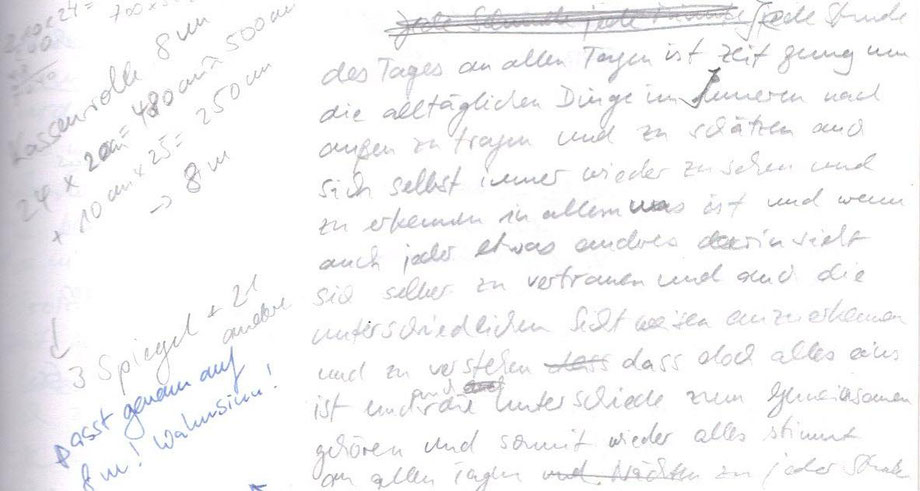 210 x 24 =
Kassenrolle 8 m
24 x 20cm = 480 cm ≈ 500 cm
+ 10 cm x 25 = 250 cm
→ 8 m
3 Spiegel + 21
andere
passt genau auf
8 m! Wahnsinn!
jede Stunde jede Minute Jede Stunde
des Tages an allen Tagen ist Zeit genug um
die alltäglichen Dinge im Inneren nach
außen zu tragen und zu schätzen und
sich selbst immer wieder zu sehen und
zu erkennen in allem was ist und wenn
auch jeder etwas anderes darin sieht
sich selber zu vertrauen und auch die
unterschiedlichen Sichtweisen anzuerkennen
und zu verstehen dass dass doch alles eins
ist und die Unterschiede zum Gemeinsamen
gehören und somit wieder alles stimmt
an allen Tagen und Nächten zu jeder Stunde